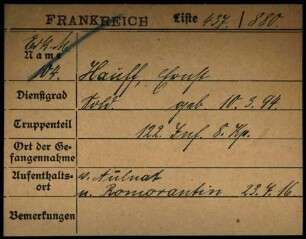 FRANKREICH Liste 437/880.
Name
104. Hauff, Ernst
Dienstgrad Sold geb. 10.3.94.
Truppenteil 122. Inf. 8. Kp.
Ort der Ge-
fangennahme
Aufenthalts-
ort v. Aulnat
n. Romorantin 23.4.16
Bemerkungen